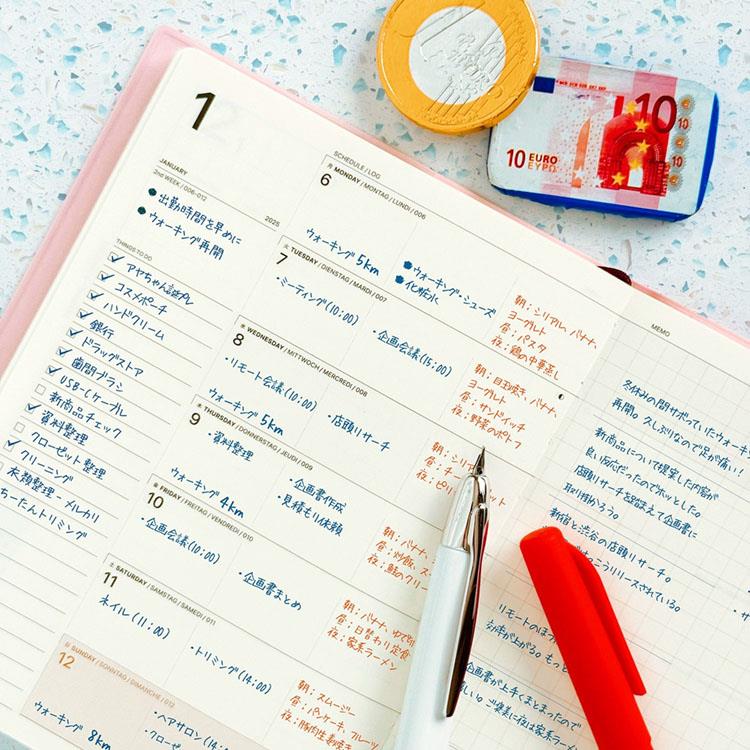 1
JANUARY
2nd WEEK / 006-012
2025
出勤時間を早めに
ウォーキング再開
THINGS TO DO
アヤちゃん誕プレ
コスメポーチ
ハンドクリーム
銀行
ドラッグストア
歯間ブラシ
USB-Cケーブル
新商品チェック
資料整理
クローゼット整理
クリーニング
衣類整理-メルカリ
ちーたんトリミング
SCHEDULE / LOG
6 月 MONDAY / MONTAG / LUNDI / 006
ウォーキング 5km
ウォーキング・シューズ
化粧水
朝：シリアル、バナナ、
ヨーグルト
昼：パスタ
夜：鶏の中華蒸し
7 火 TUESDAY / DIENSTAG / MARDI / 007
・ミーティング(10:00)
・企画会議(15:00)
朝：目玉焼き、バナナ、
ヨーグルト
昼：サンドイッチ
夜：野菜のポトフ
8 水 WEDNESDAY / MITTWOCH / MERCREDI / 008
・リモート会議(10:00)
ウォーキング 5km
・店頭リサーチ
朝：シリ
昼：チー ット
夜：ピリ
9 木 THURSDAY / DONNERSTAG / JEUDI / 009
・資料整理
ウォーキング 4km
・企画書作成
・見積もり依頼
朝：バナナ、
昼：炒飯、ス
夜：鮭のクリー
10 金 FRIDAY / FREITAG / VENDREDI / 010
・企画会議(10:00)
・企画書まとめ
朝：バナナ、ゆで
昼：日替わり定食
夜：家系ラーメン
11 土 SATURDAY / SAMSTAG / SAMEDI / 011
ネイル(11:00)
・トリミング(14:00)
朝：スムージー
昼：パンケーキ、フルーツ
夜：豚肉生姜焼き
12 日 SUNDAY / SONNTAG / DIMANCHE / 012
ウォーキング 8km
・ヘアサロン(14:00)
・クローゼ
MEMO
冬休みの間サボっていたウォーキ
再開。久しぶりなので足が痛い！
新商品について提案した内容が
良い反応だったのでホッとした。
店頭リサーチを踏まえて企画書に
取り掛かろう。
新宿と渋谷の店頭リサーチ。
っこうリリースされている。
リモートのほう
効率が上がる。もっと
企画書が上手くまとまったので
しい。ご褒美に夜は家系ラー
・サ
10
10 EURO
ΕΥΡΩ
10
10